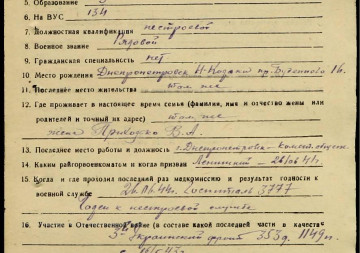 5. Образование 3
6. На ВУС 134
7. Должностная квалификация нестроевой
8. Военное звание Рядовой
9. Гражданская специальность нет
10. Место рождения Днепропетровск Н-Кодаки пр. Буденного 16
11. Последнее место жительства там же
12. Где проживает в настоящее время семья (фамилия, имя и отчество жены или
родителей и точный их адрес) там же
жена Приходько В.А.
13. Последнее место работы и должность г. Днепропетровск-
14. Каким райгорвоенкоматом и когда призван Ленинский - 26/06 41 г.
15. Когда и где проходил последний раз медкомиссию и результат годности к
военной службе 26.06.44 г. госпиталь 3777
Годен к нестроевой службе
16. Участие в Отечественной войне (в составе какой последней части в качестве
3-й Украинский фронт 353 д. 1149 п.